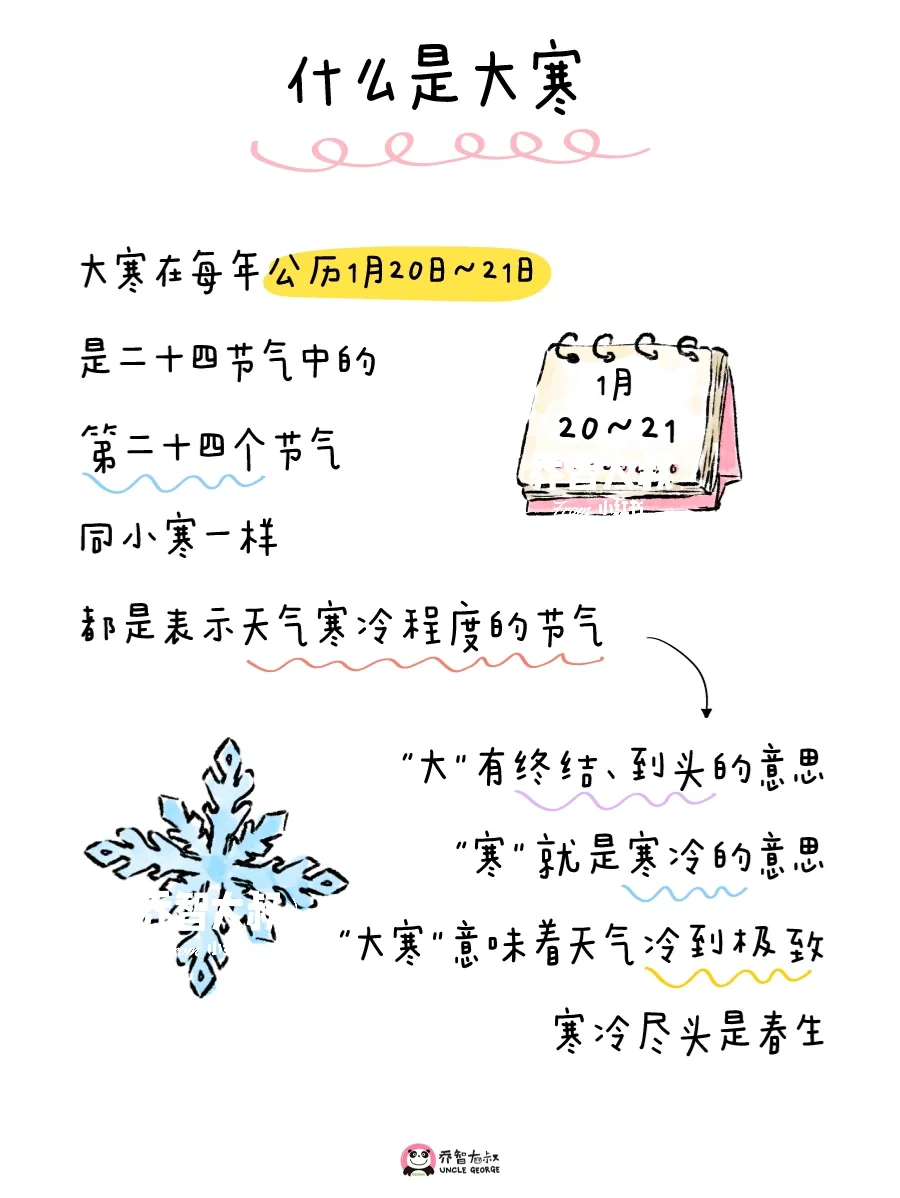 什么是大寒
大寒在每年公历1月20日~21日
是二十四节气中的
第二十四个节气
同小寒一样
都是表示天气寒冷程度的节气
1月
20~21
乔智大叔
小红书
"大"有终结、到头的意思
"寒"就是寒冷的意思
乔智大叔
"大寒"意味着天气冷到极致
寒冷尽头是春生
乔智大叔
UNCLE GEORGE